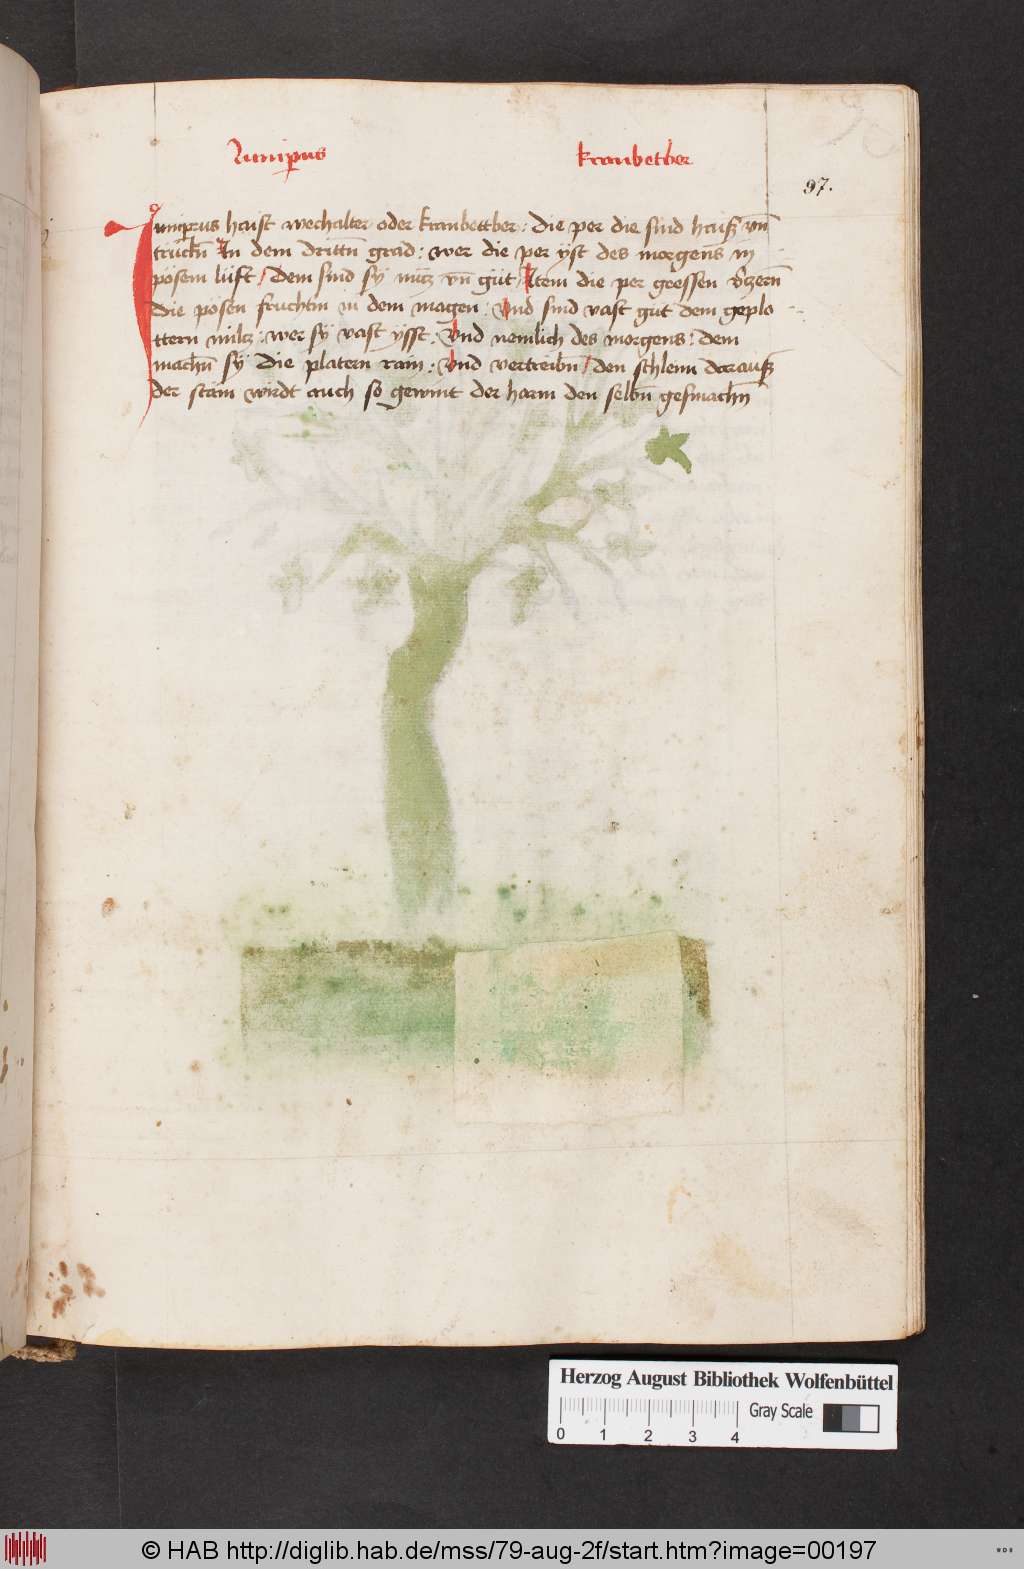 Iuniperus kranbetber
97.
Iuniprus haist wechalter oder kranbettber : die per die sind haiß vn̄
trückn̄ In dem drittn̄ grad : wer die per yst des morgens in
pösem lüft / dem sind sÿ nütz vn̄ güt / Item die per geessen v̉zern̄
die pösen fruchtin in dem magen : Vnd sind vast gut dem geplo
ttern miltz : wer sÿ vast ysst : Vnd nemlich des morgens : dem
machn̄ sÿ die platern rain : Vnd vertreibn̄ / den schleim darauß
der stain wirdt auch so gewint der harm den selbn̄ gesmachn̄
Herzog August Bibliothek Wolfenbüttel
Gray Scale
0 1 2 3 4
© HAB http://diglib.hab.de/mss/79-aug-2f/start.htm?image=00197